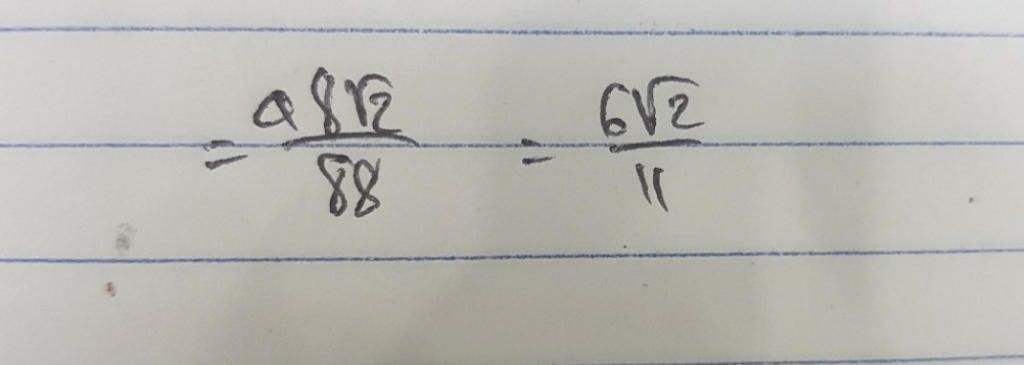 = 48√2/88 = 6√2/11